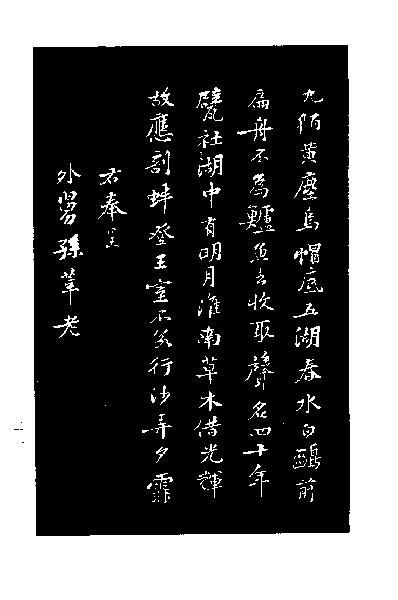 九陌黃塵烏帽底五湖春水白鷗前
扁舟不為鱸魚去收取聲名四十年
甓社湖中有明月淮南草木借光輝
故應剖蚌登王室不若行沙弄夕霏
右奉呈
外舅孫莘老